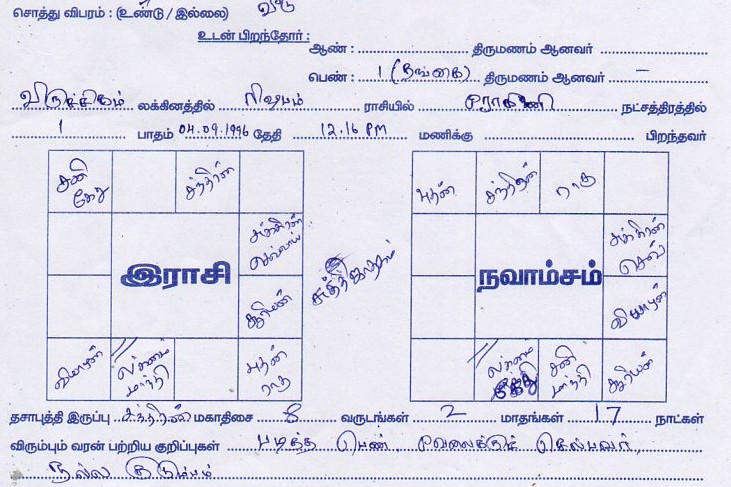 சொத்து விபரம் : (உண்டு / இல்லை)
உடன் பிறந்தோர் :
ஆண் : திருமணம் ஆனவர்
பெண் : 1 (தங்கை) திருமணம் ஆனவர் –
விருச்சிகம் லக்கினத்தில் ரிஷபம் ராசியில் ரோகிணி நட்சத்திரத்தில்
1 பாதம் 04.09.1996 தேதி 12.16 PM மணிக்கு பிறந்தவர்
சனி கேது
சந்திரன்
சுக்கிரன் செவ்வாய்
இராசி
சூரியன்
வியாழன்
லக்னம் மாந்தி
புதன் ராகு
சுத்த ஜாதகம்
புதன்
சந்திரன்
ராகு
சுக்கிரன் செவ்
நவாம்சம்
வியாழன்
லக்னம் கேது
சனி மாந்தி
சூரியன்
தசாபுத்தி இருப்பு சந்திரன் மகாதிசை 8 வருடங்கள் 2 மாதங்கள் 17 நாட்கள்
விரும்பும் வரன் பற்றிய குறிப்புகள் படித்த பெண், வேலைக்கு செல்பவர்,
நல்ல குடும்பம்